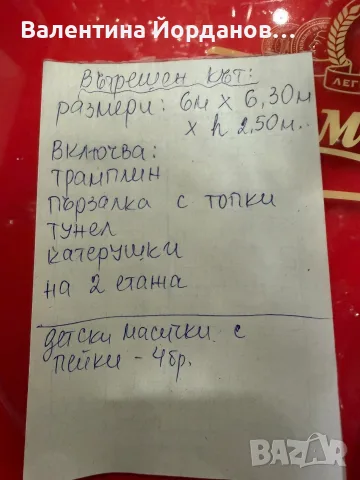 Валентина Йорданов...
Вътрешен кът:
размери: 6м х 6,30м
х h 2,50м..
Включва:
трамплин
пързалка с топки
тунел
катерушки
на 2 етажа
детски масички с
пейки - 4бр.
BAZAR